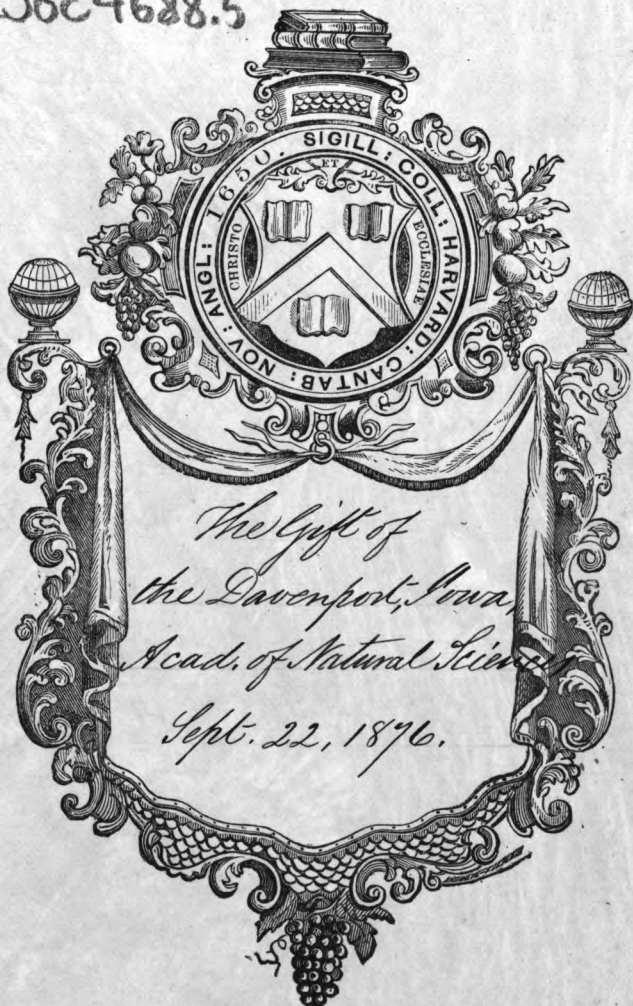 Soc 4688.5
SIGILL: COLL: HARVARD: CANTAB: NOV: ANGL: 1650.
CHRISTO ET ECCLESIAE
The Gift of
the Davenport, Iowa,
Acad. of Natural Sciences
Sept. 22, 1876.